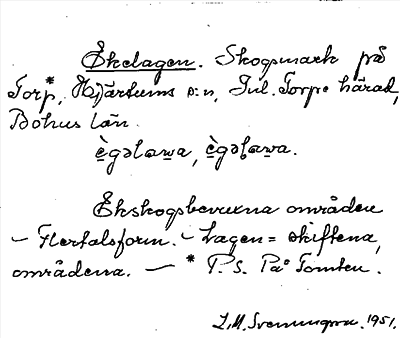 Ekelagen. Skogsmark på
Torp*, Hjärtums s:n, Inl. Torpe härad,
Bohus län.
è̱gəlawa, è̱gəlawa.
Ekskogsbevuxna områden
– Flertalsform. – Lagen = skiftena,
områdena. — * P.S. På Tomten.
1951.